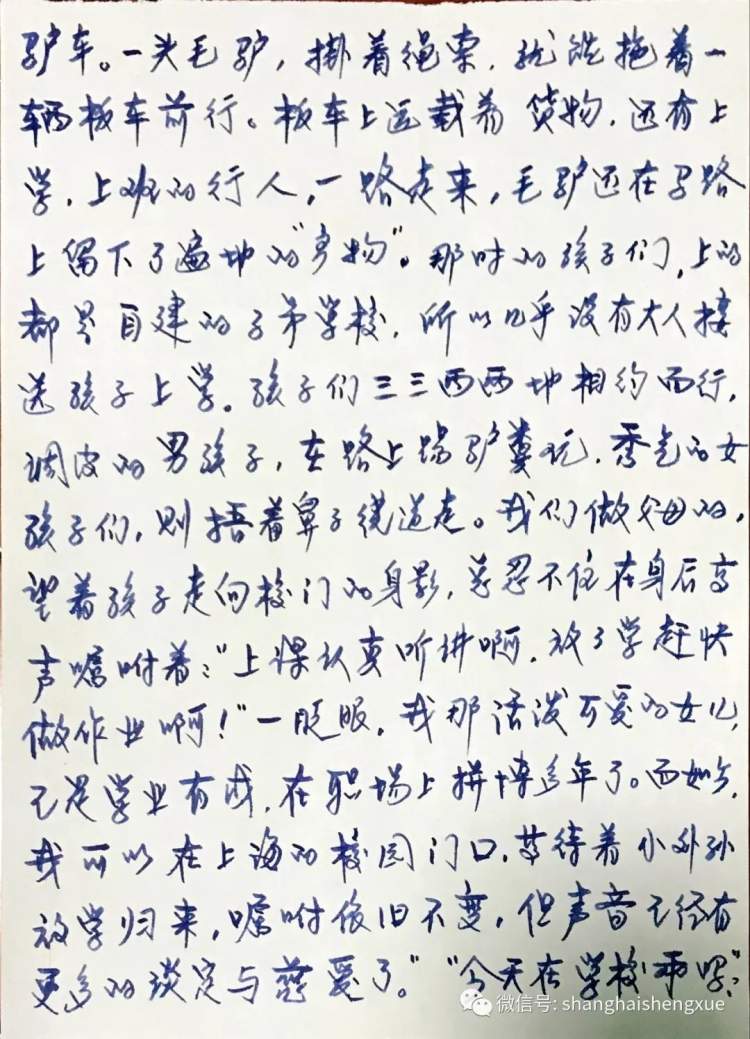 驴车。一头毛驴，掛着绳索，就能拖着一
辆板车前行。板车上运载着货物，还有上
学，上班的行人，一路走来，毛驴还在马路
上留下了遍地的“产物”。那时的孩子们，上的
都是自建的子弟学校，所以几乎没有大人接
送孩子上学。孩子们三三两两地相约而行，
调皮的男孩子，在路上踢驴粪玩，秀气的女
孩子们，则捂着鼻子绕道走。我们做父母的，
望着孩子走向校门的身影，总忍不住在身后高
声嘱咐着：“上课认真听讲啊，放了学赶快
做作业啊！”一眨眼，我那活泼可爱的女儿，
已是学业有成，在职场上拼博多年了。而如今，
我可以在上海的校园门口，等待着小外孙
放学归来，嘱咐依旧不变，但声音已经有
更多的淡定与慈爱了。”“今天在学校乖吗”？
微信号: shanghaishengxue